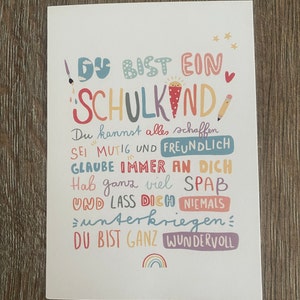 DU BIST EIN
SCHULKIND
Du kannst alles schaffen
SEI MUTIG UND FREUNDLICH
GLAUBE IMMER AN DICH
Hab ganz viel SPAß
UND LASS DICH NIEMALS
unterkriegen
DU BIST GANZ WUNDERVOLL